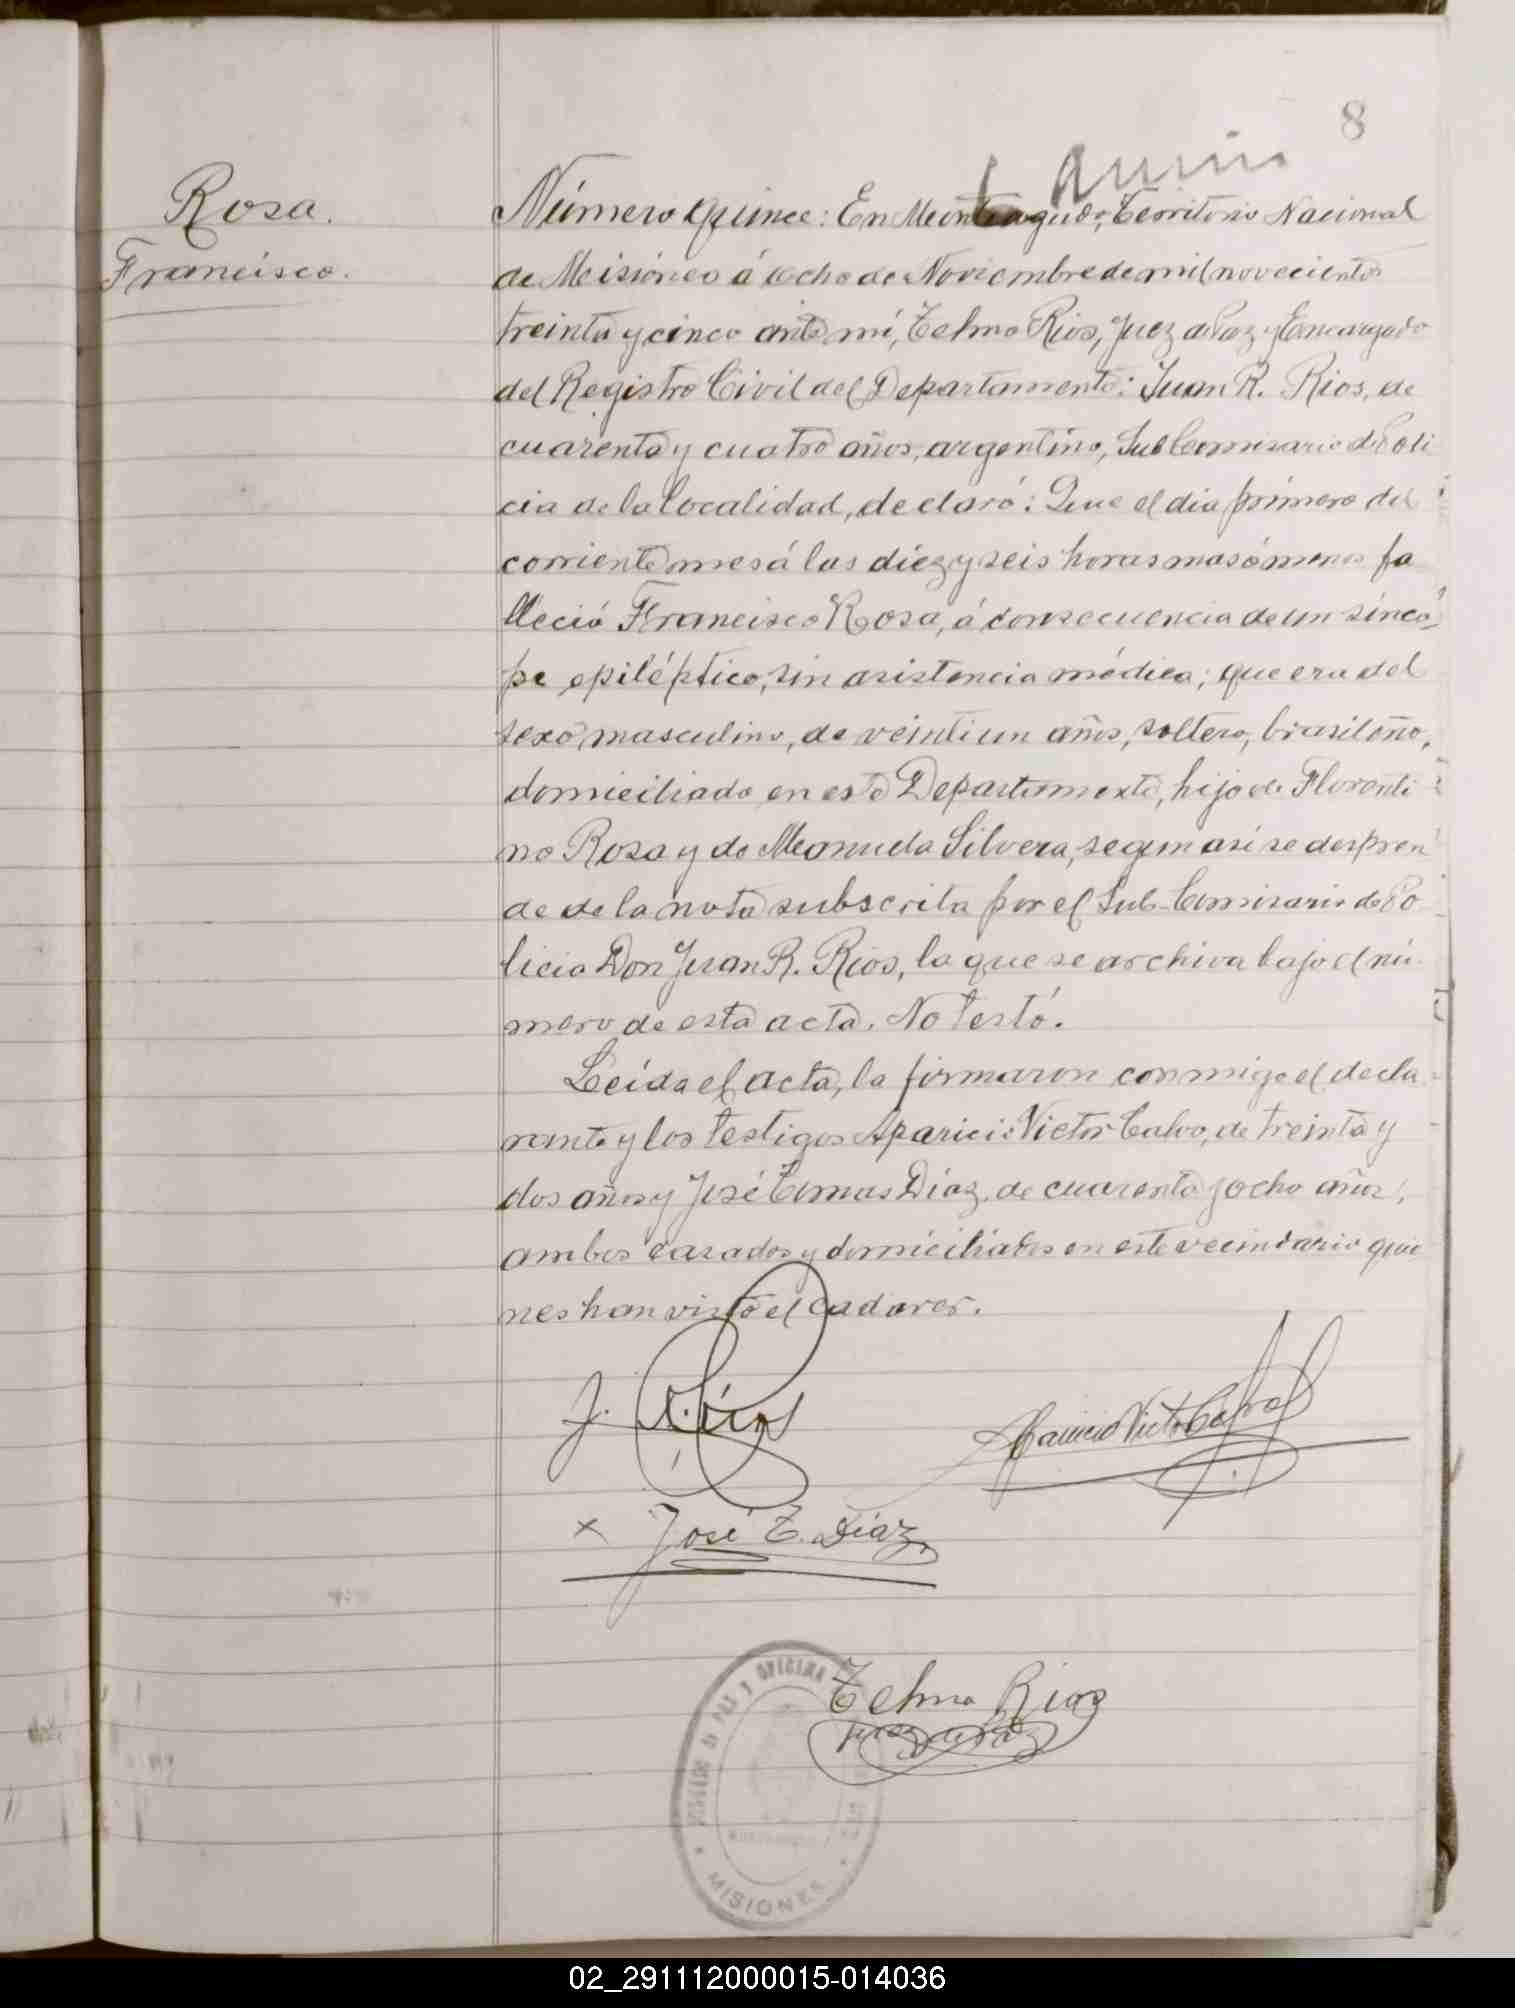 8
Rosa.
Francisco.
Número quince: En Monteagudo, Territorio Nacional
de Misiones á ocho de Noviembre de mil novecientos
treinta y cinco ante mí, Telmo Rios, Juez de Paz y Encargado
del Registro Civil del Departamento: Juan R. Rios, de
cuarenta y cuatro años, argentino, Sub Comisario de Poli
cia de la localidad, declaró: Que el dia primero del
corriente mes á las diez y seis horas mas ó menos fa
lleció Francisco Rosa, á consecuencia de un sínco
pe epiléptico, sin asistencia médica; que era del
sexo masculino, de veintiun años, soltero, brasileño,
domiciliado en este Departamento, hijo de Florenti
no Rosa y de Manuela Silvera, segun asi se despren
de de la nota subscrita por el Sub-Comisario de Po
licia Don Juan R. Rios, la que se archiva bajo el nú-
mero de esta acta. No testó.
Leída el acta, la firmaron conmigo el decla
rante y los testigos Aparicio Victor Calvo, de treinta y
dos años y José Tomas Díaz, de cuarenta y ocho años,
ambos casados y domiciliados en este vecindario quie
nes han visto el cadaver.
J. R. Ríos
Aparicio Victor Calvo
x José T. Díaz
Telmo Rios
Juez de Paz
JUZGADO DE PAZ Y OFICINA
MISIONES
02_291112000015-014036